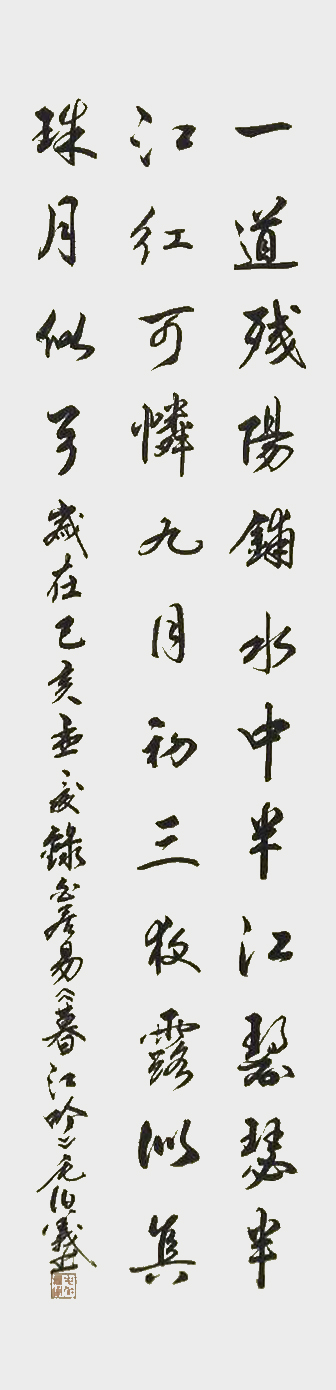 一道残陽鋪水中半江瑟瑟半
江红可憐九月初三夜露似真
珠月似弓歲在己亥孟夏錄白居易《暮江吟》